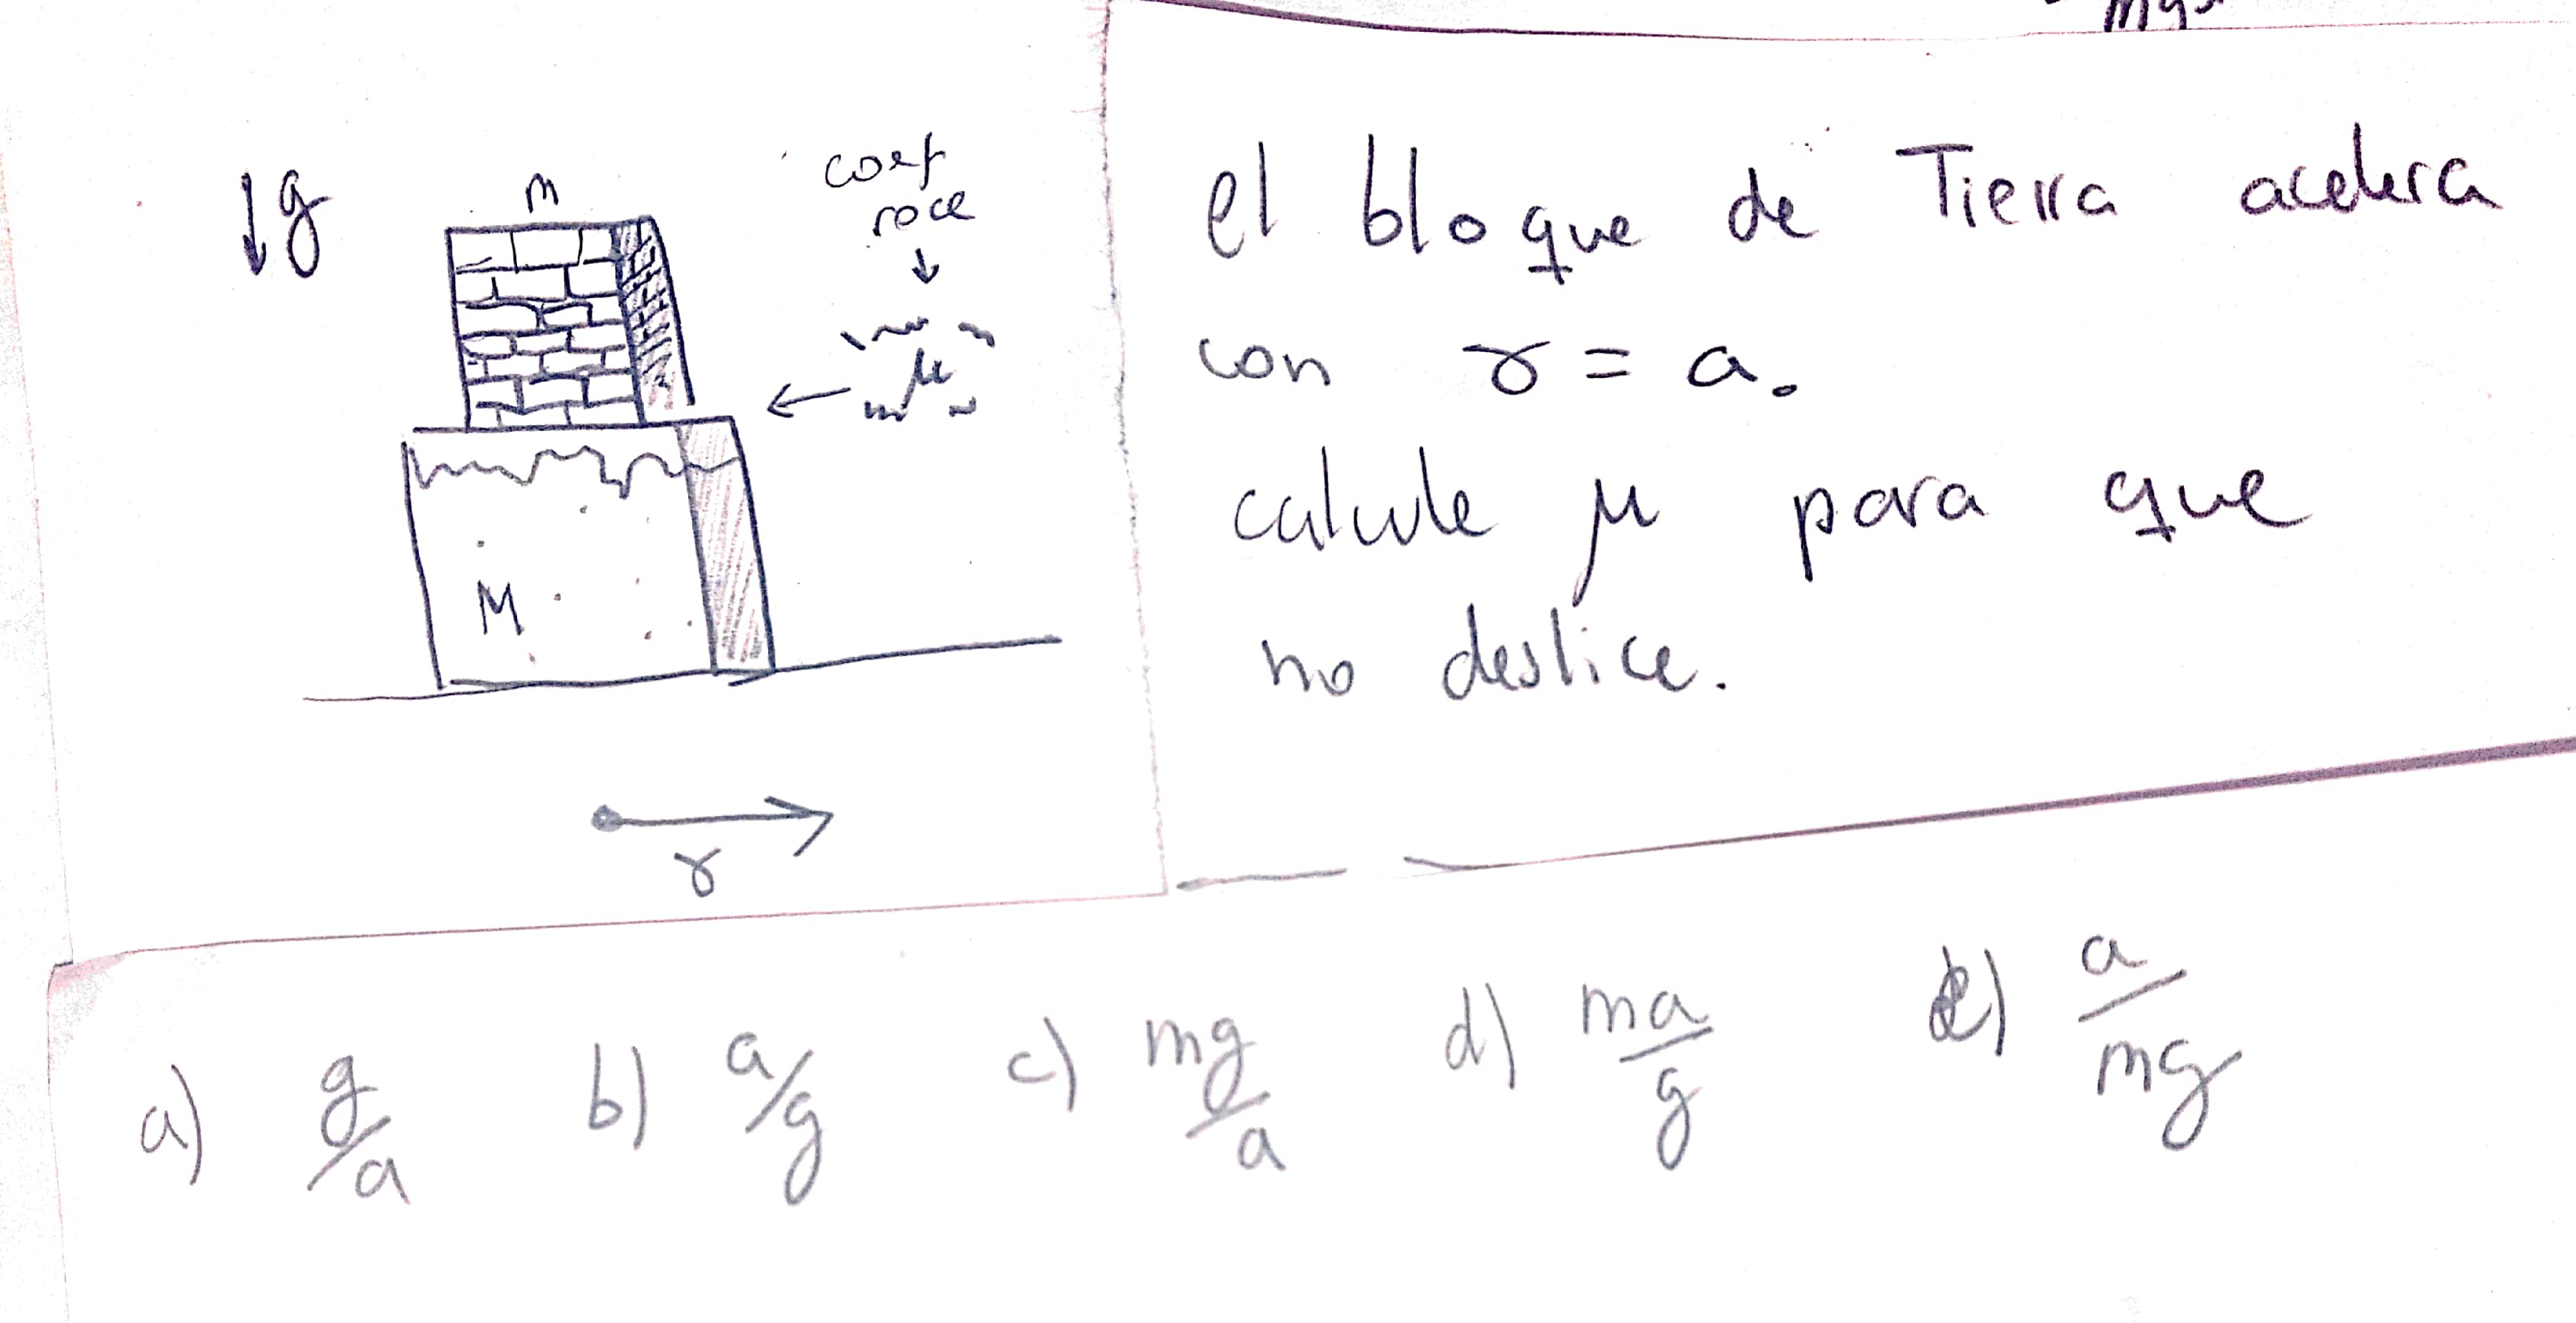 ↓g
m
coef
roce
↓
μ
M
γ
el bloque de Tierra acelera
con γ = a.
calcule μ para que
no deslice.
a) g/a b) a/g c) mg/a d) ma/g e) a/mg